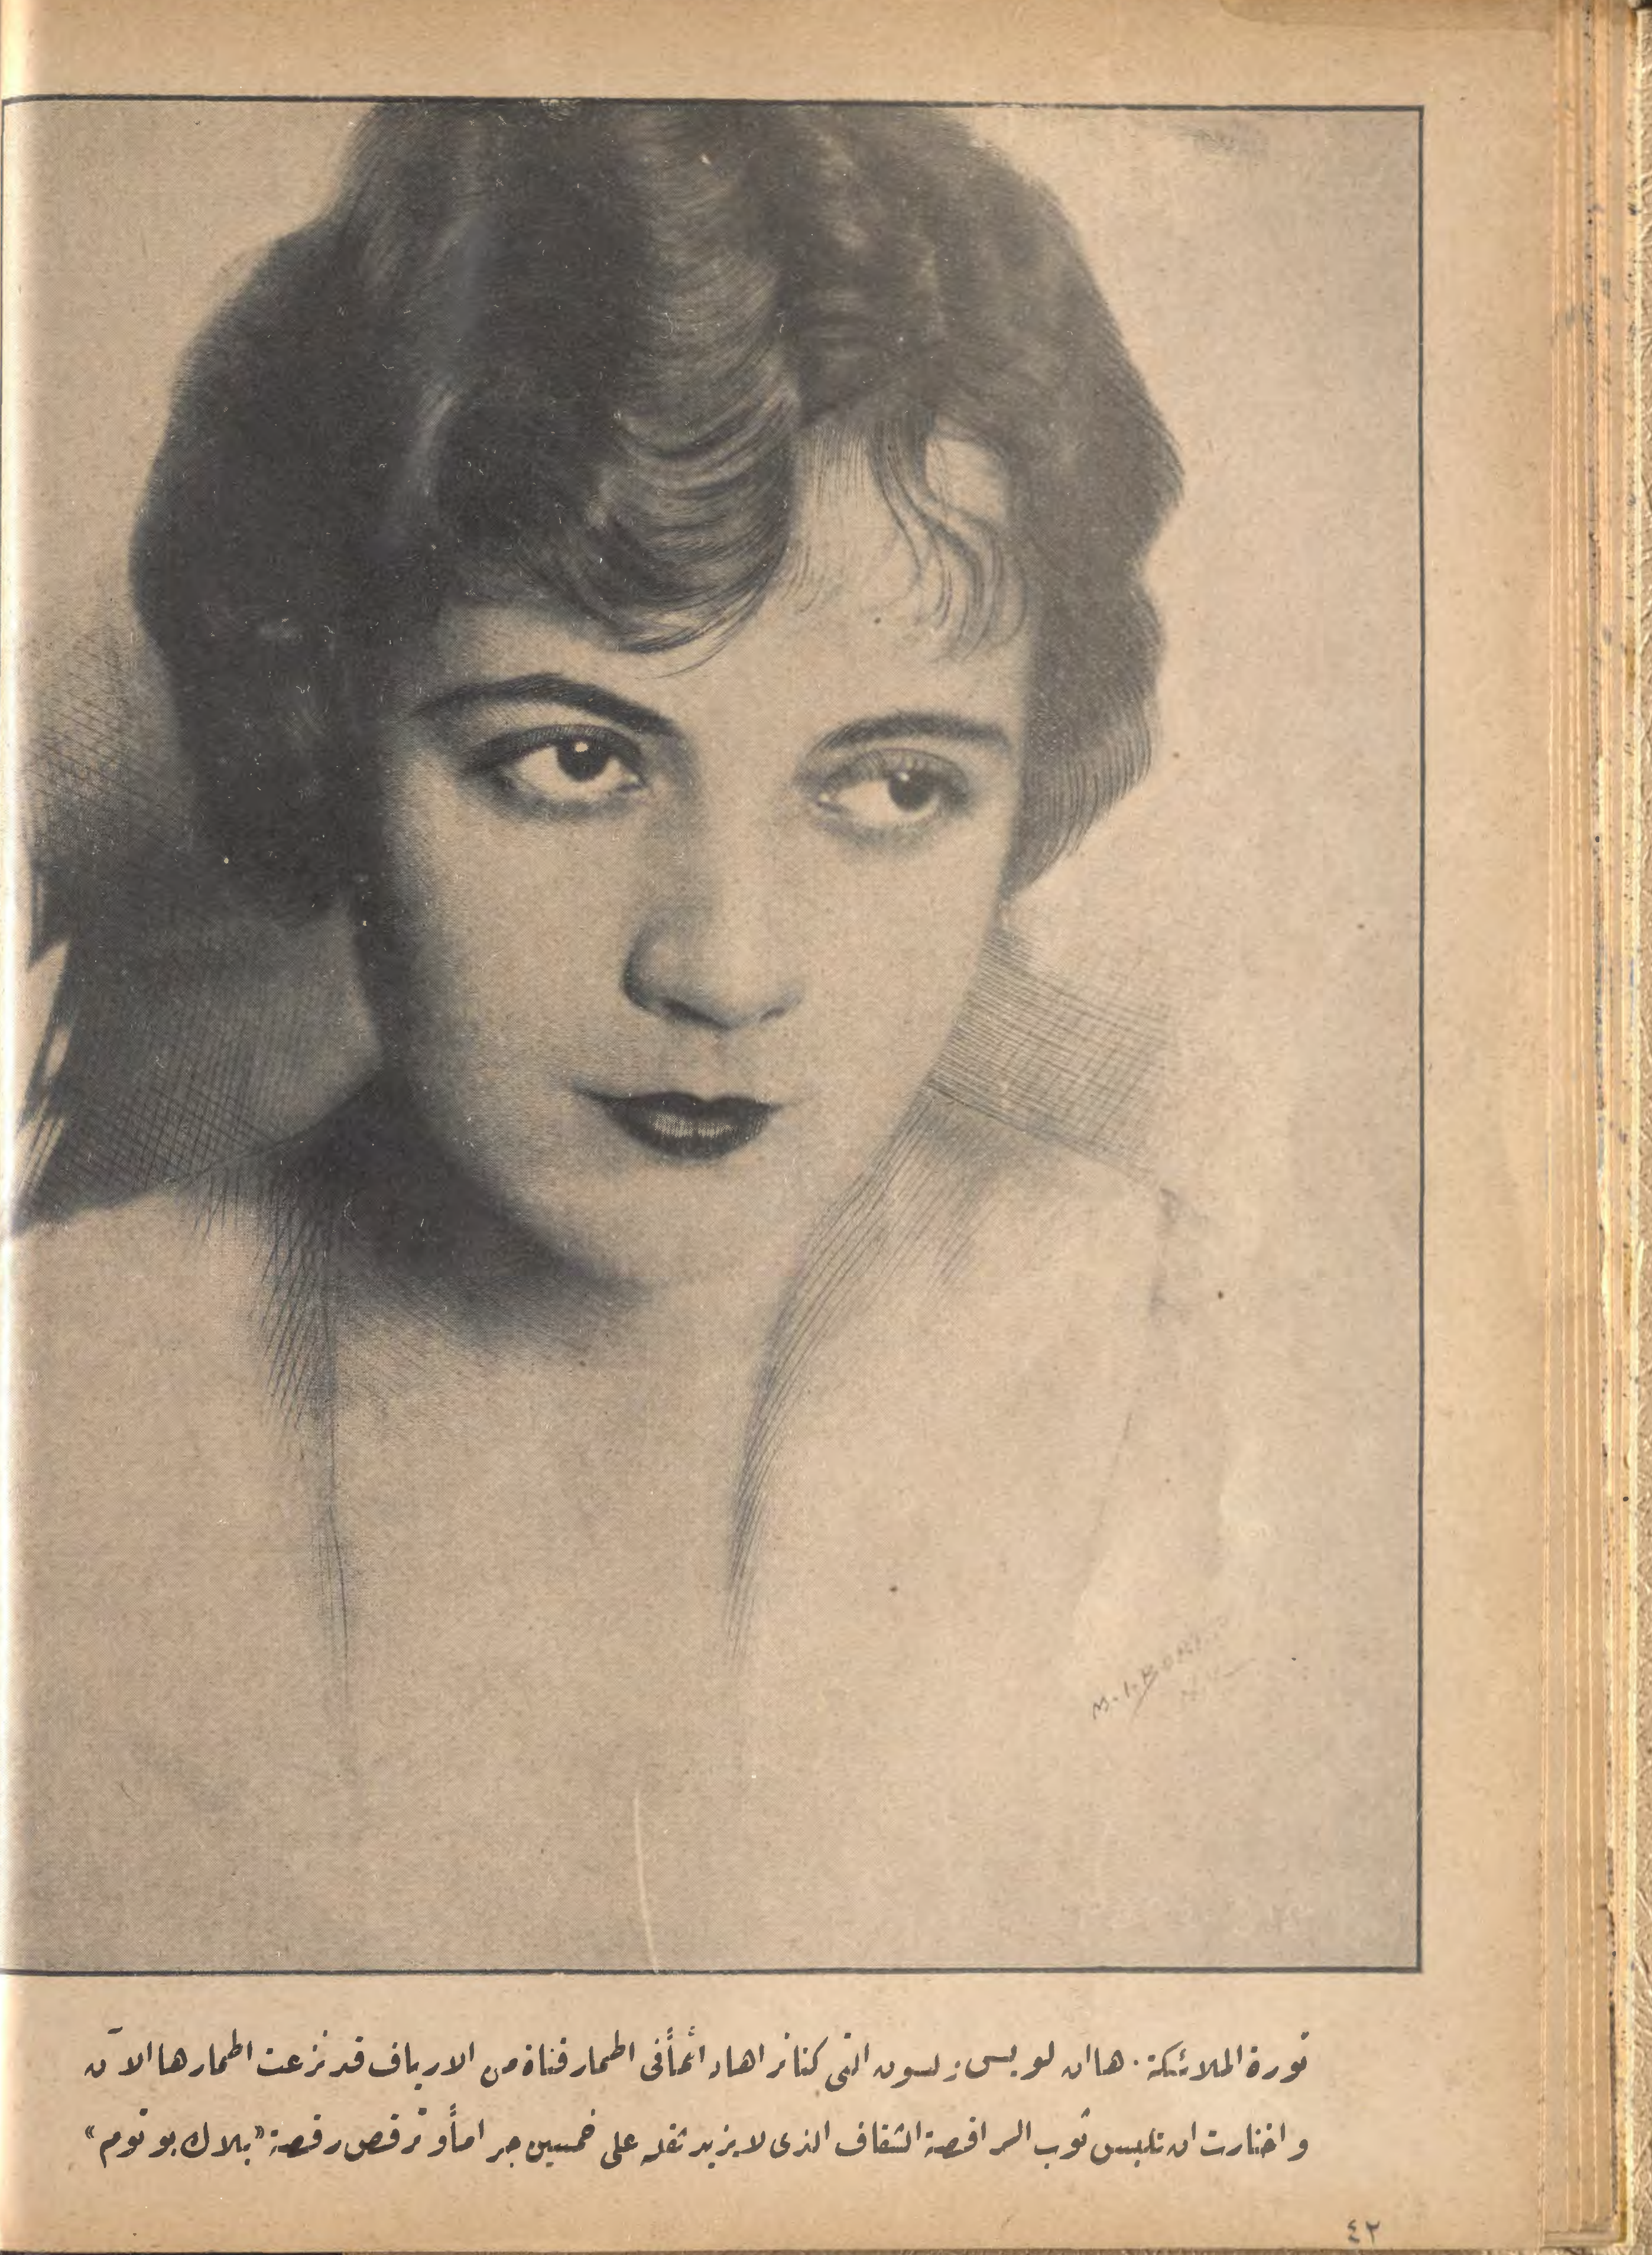 M.I. BORIS
N.Y.
ثورة الملائكة. ها ان لويس زلسون التى كنا نراها دائماً فى اطمار فتاة من الارياف قد نزعت اطمارها الآن
واختارت ان تلبس ثوب الراقصة الشفاف الذى لا يزيد ثقله على خمسين جراماً وترقص رقصة «بلاك بوتوم»
٤٢